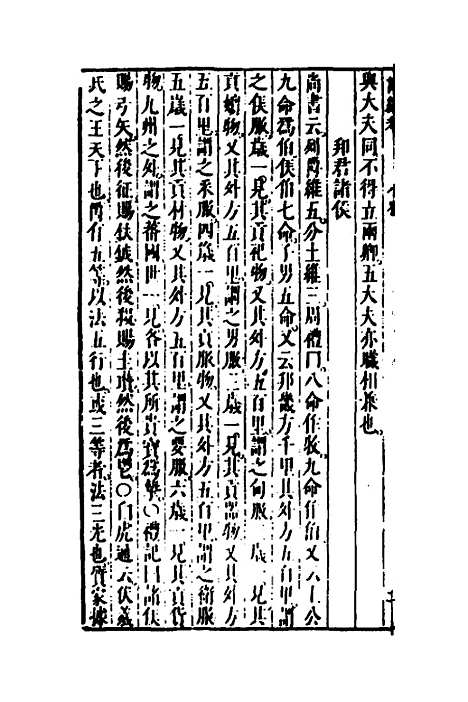 與大夫同不得立兩卿五大夫亦職相兼也
邦君諸侯
尚書云列爵維五分土維三周禮曰八命作牧九命作伯又云上公
九命為伯侯伯七命子男五命又云邦畿方千里其外方五百里謂
之侯服歲一見其貢祀物又其外方五百里謂之甸服二歲一見其
貢嬪物又其外方五百里謂之男服三歲一見其貢器物又其外方
五百里謂之采服四歲一見其貢服物又其外方五百里謂之衛服
五歲一見其貢材物又其外方五百里謂之要服六歲一見其貢貨
物九州之外謂之蕃國世一見各以其所貴寶為摯○禮記曰諸侯
賜弓矢然後征賜鈇鉞然後殺賜圭瓚然後為鬯○白虎通云伏羲
氏之王天下也爵有五等以法五行也或三等者法三光也質家據